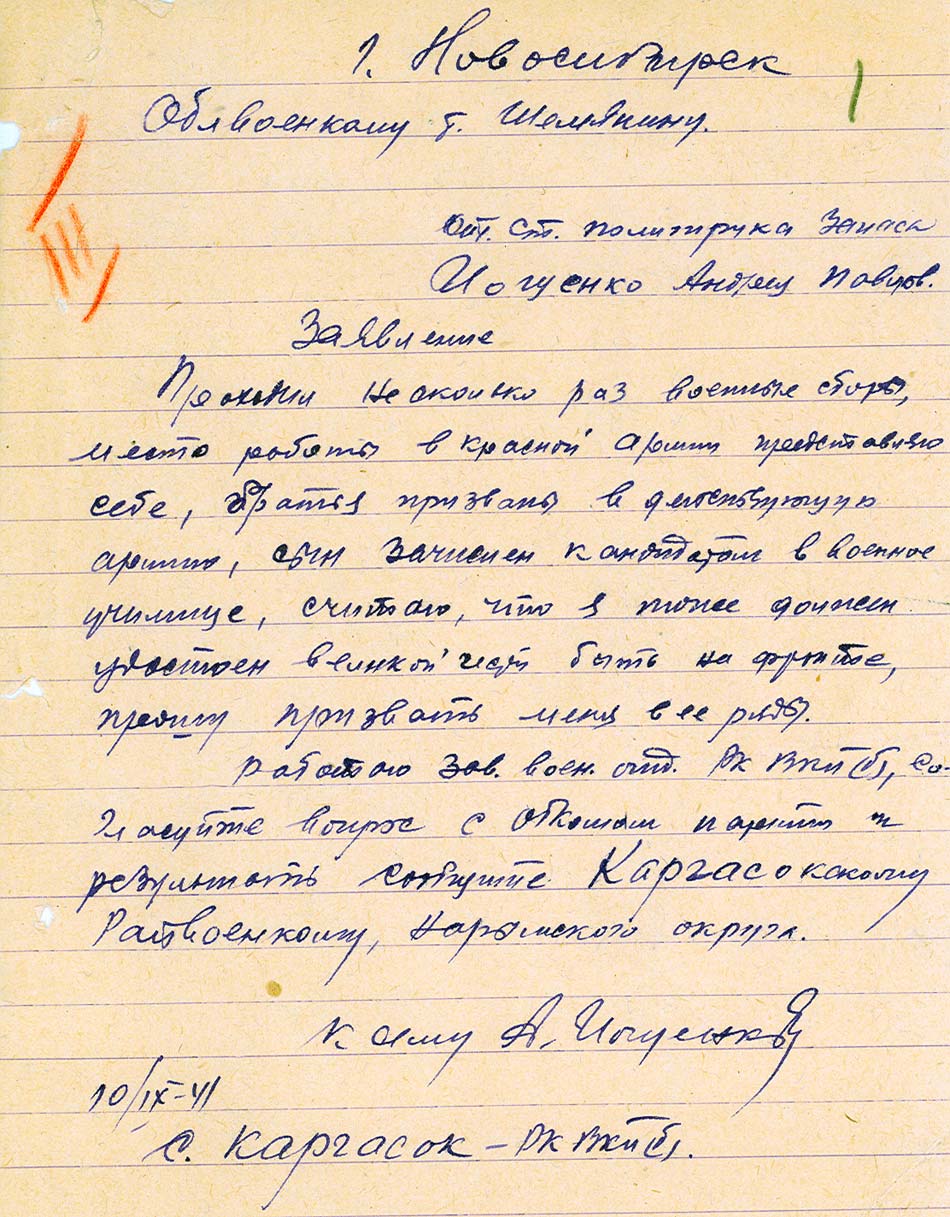 г. Новосибирск
Облвоенкому т. Шемякину.
От. ст. политрука запаса
Йогусенко Андрея Павлов.
Заявление
Прохожи несколько раз военные сборы,
место работы в красной армии представляю
себе, братья призваны в действующую
армию, сын зачислен кандидатом в военное
училище, считаю, что я тоже должен
удостоен великой чести быть на фронте,
прошу призвать меня в ее ряды.
Работаю зав. воен. отд. РК ВКП(б), со-
гласуйте вопрос с обкомом партии и
результаты сообщите Каргасокскому
Райвоенкому, Нарымского округа.
К сему А.
10/IX-41
с. Каргасок – РК ВКП(б).